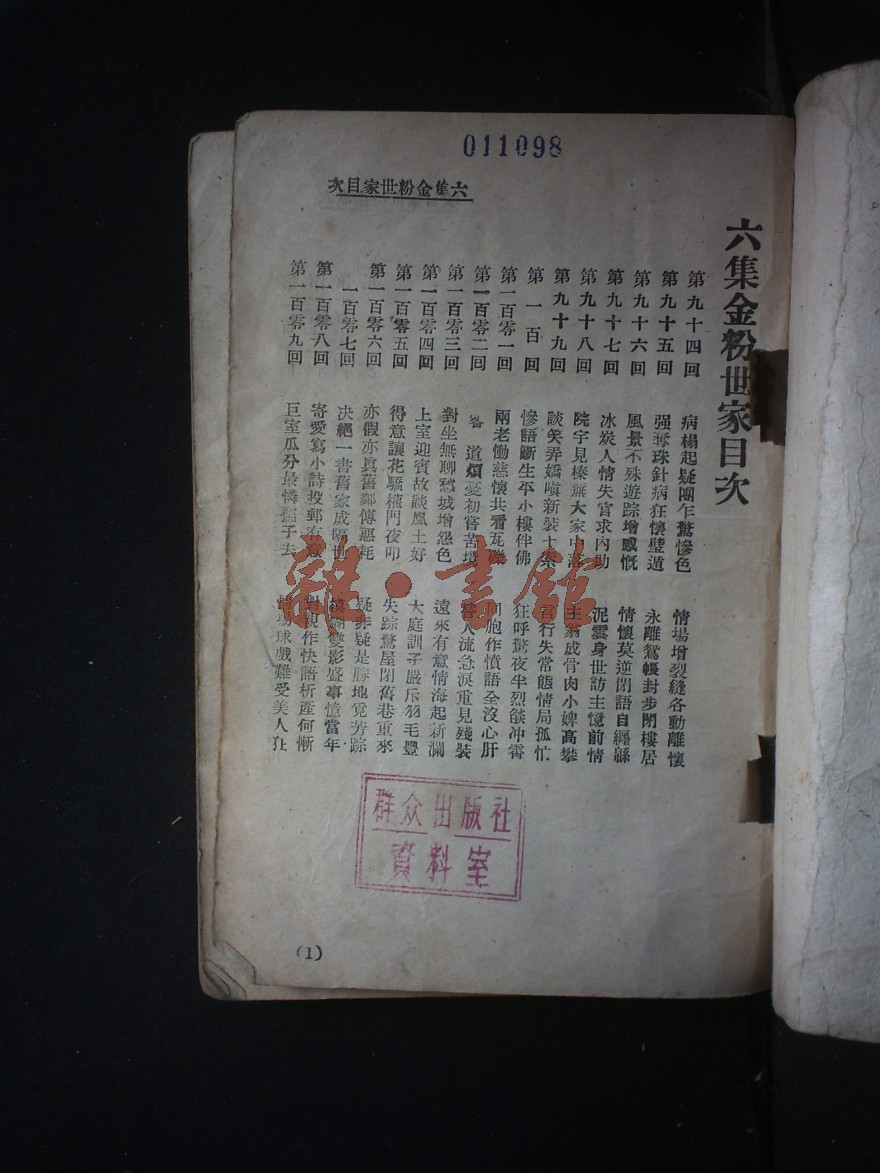 011098
六集金粉世家目次
六集金粉世家目次
第九十四回 病榻起疑團乍驚慘色 情場增裂縫各動離懷
第九十五回 强奪珠針病狂懷璧遁 永離鴛帳封步閉樓居
第九十六回 風景不殊遊踪增感慨 情懷莫逆閑語自纒緜
第九十七回 冰炭人情失官求內助 泥雲身世訪主憶前情
第九十八回 院宇見榛蕪大家中落 主翁成骨肉小婢高攀
第九十九回 談笑弄嬌嗔新裝十索 言行失常態情局孤忙
第一百回 慘語斷生平小樓伴佛 狂呼驚夜半烈燄冲霄
第一百零一回 兩老慟慈懷共看瓦礫 同胞作憤語全沒心肝
第一百零二回 道煩憂初嘗苦 人流急淚重見殘裝
第一百零三回 對坐無聊愁城增怨色 遠來有意情海起新瀾
第一百零四回 上室迎賓故談風土好 大庭訓子嚴斥羽毛豐
第一百零五回 得意讓花驕權門夜叩 失踪驚屋閉舊巷重來
第一百零六回 亦假亦眞舊鄰傳惡耗 疑非疑是勝地覓芳踪
一百零七回 决絕一書舊家成隔世 模糊雙影盛事憶當年
第一百零八回 寄愛寫小詩投郵有意 對親作快語析產何慚
第一百零九回 巨室瓜分最憐孺子去 情場球戲難受美人
雜·書館
群众出版社
資料室
(1)